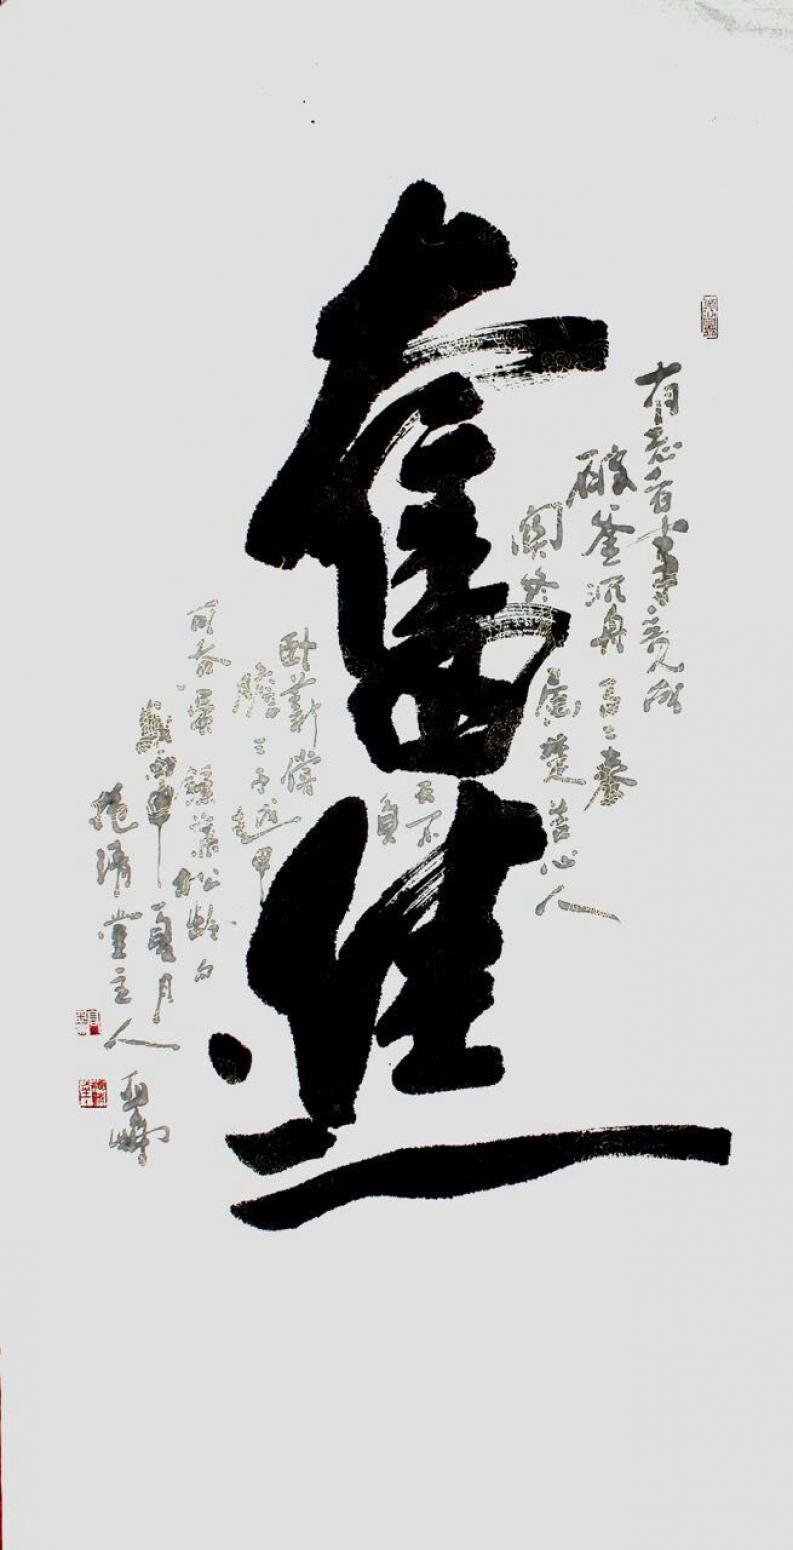 奮進
有志者事竟成
破釜沉舟百二秦
關終屬楚苦心人
天不
負
臥薪嘗
膽三千越甲
可吞吳錄蒲松齡句
歲丙申夏月
清堂主人